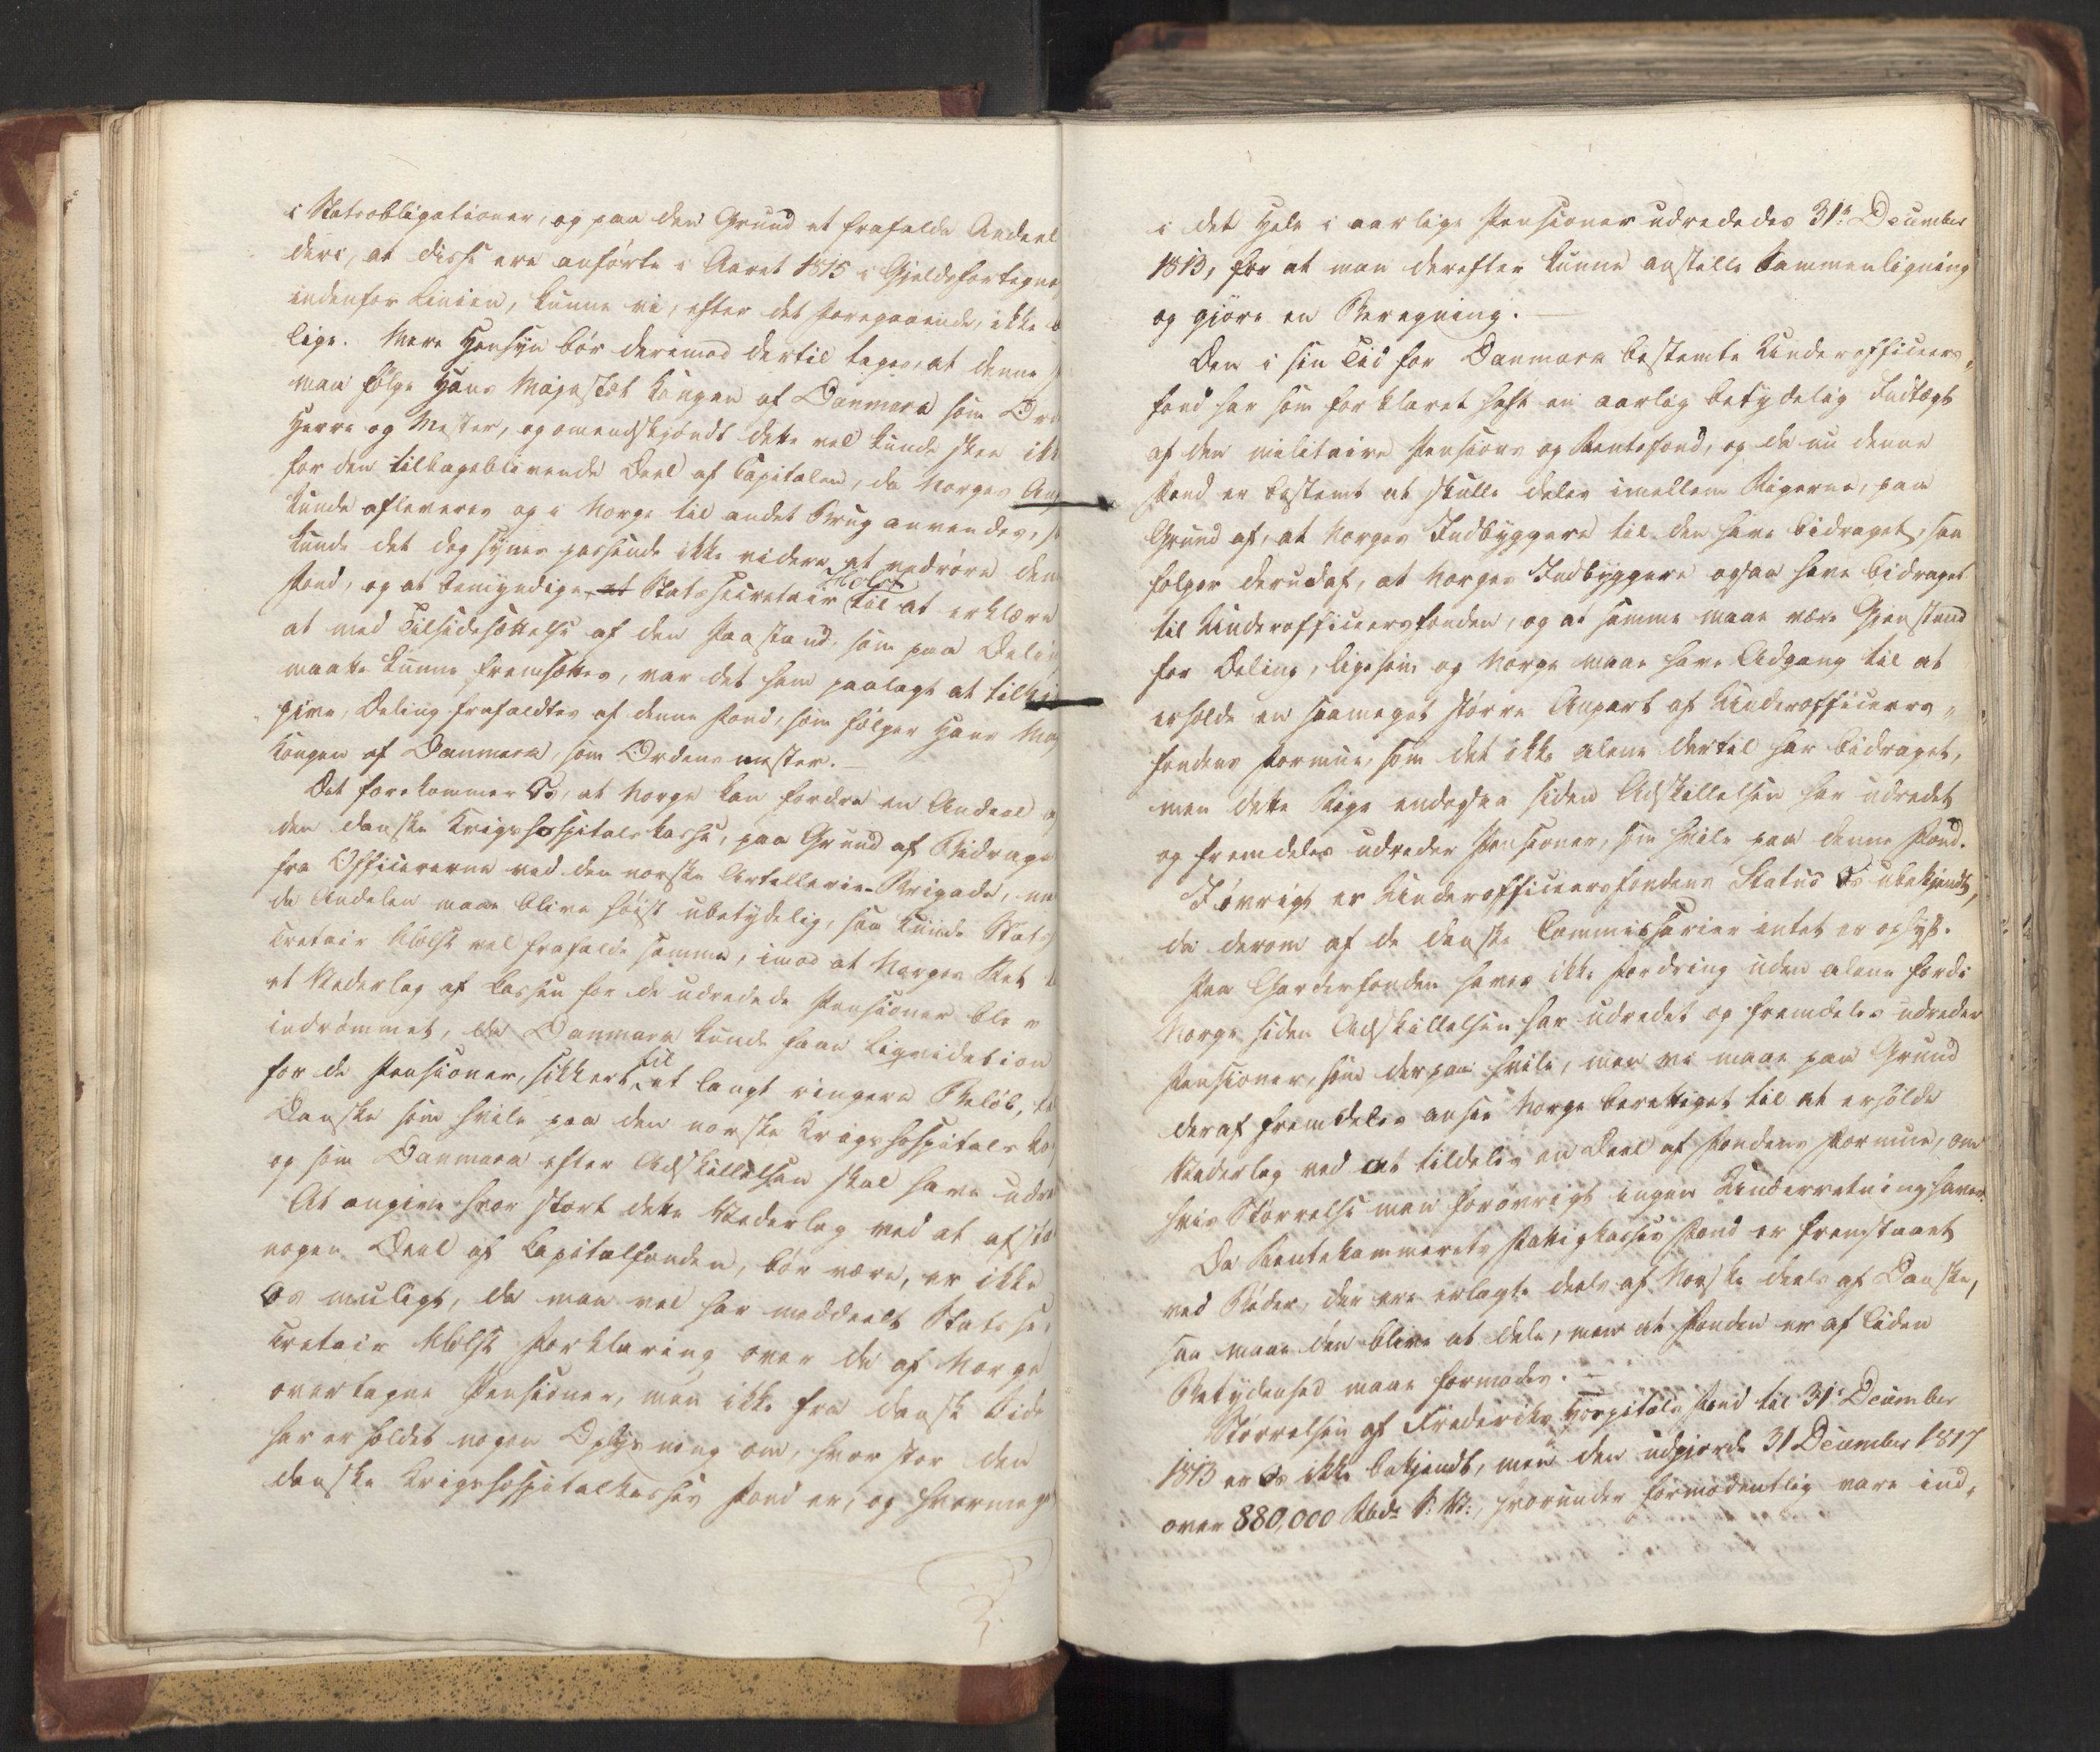 i Statsobligationer, og paa den Grund at frafalde Andeel
deri, at disse ere anførte i Aaret 1815 i Gjeldsfortegne
indenfor Linien, kunne vi, efter det Foregaaende, ikke
lige. Mere Hensyn bør derimod dertil tages, at denne
maa følge Hans Majestæt Kongen af Danmark som
Herre og Mester, og omendskjøndt dette vel kunde skee
for den tilbageblivende Deel af Capitalen, da Norges
kunde afleveres og i Norge til andet Brug anvendes,
kunde det dog synes passende ikke videre at nedrøre
Fond, og at bemyndige at Statssecretair Holst til at erklære
at med Tilsidesættelse af den Paastand, som paa
maatte kunne fremsættes, var det ham paalagt at
give, Deling frafaldtes af denne Fond, som følger Hans
Kongen af Danmark, som Ordens mester. —
Det forekommer Os, at Norge kan fordre en Andeel
den danske Krigshospitalskasse, paa Grund af Bidrage
fra Officererne ved den norske Artillerie-Brigade,
da Andelen maae blive høist ubetydelig, saa kunde Stats
cretair Holst vel frafalde samme, imod at Norges Ret
et Vederlag af Cassen for de udredede Pensioner blev
indrømmet, da Danmark kunde faae Liqvidation
for de Pensioner, sikkert til et langt ringere Beløb,
Danske som hvile paa den norske Krigshospitals
og som Danmark efter Adskillelsen skal have
At angive hvor stort dette Vederlag ved at
nogen Deel af Capitalfonden, bør være, er ikke
Os muligt, da man vel har meddeelt Statsse
cretair Holst Forklaring over de af Norge
overtagne Pensioner, men ikke fra dansk Side
har erholdet nogen Oplysning om, hvor stor den
danske Krigshospitalkasses Fond er, og hvormeget
i det Hele i aarlige Pensioner udrededes 31te December
1813, for at man derefter kunne anstille Sammenligning
og gjøre en Beregning. —
Den i sin Tid for Danmark bestemte Underofficeers-
fond har som forklaret havt en aarlig betydelig Indtægt
af den militaire Pensions og Rentefond, og da nu denne
Fond er bestemt at skulle deles imellem Rigerne, paa
Grund af, at Norges Indbyggere til den have bidraget, saa
følger deraf, at Norges Indbyggere ogsaa have bidraget
til Underofficeersfonden, og at samme maae være Gjenstand
for Deling, ligesom og Norge maae have Adgang til at
erholde en saameget større Anpart af Underofficeers-
fondens Formue, som det ikke alene dertil har bidraget,
men dette Rige endogsaa siden Adskillelsen har udredet
og fremdeles udreder Pensioner, som hvile paa denne Fond.
Iøvrigt er Underofficeersfondens Status Os ubekjendt,
da derom af de danske Commissarier intet er oplyst.
Paa Garderfonden haves ikke Fordring uden alene fordi
Norge siden Adskillelsen har udredet og fremdeles udreder
Pensioner, som derpaa hvile, men vi maae paa Grund
deraf fremdeles ansee Norge berettiget til at erholde
Vederlag ved at tildeles en Deel af Fondens Formue, om
hvis Størrelse man forøvrigt ingen Underretning haver.
Da Rentekammerets Fattigkasses Fond er fremstaaet
ved Bøder, der ere erlagte deels af Norske deels af Danske,
saa maae den blive at dele, men at Fonden er af liden
Betydenhed maae formodes. —
Størrelsen af Frederiks Hospitals Fond til 31te December
1813 er Os ikke bekjendt, men den udgjorde 31 December 1817
over 880,000 Rbdr S: V:, hvorunder formodentlig vare ind-